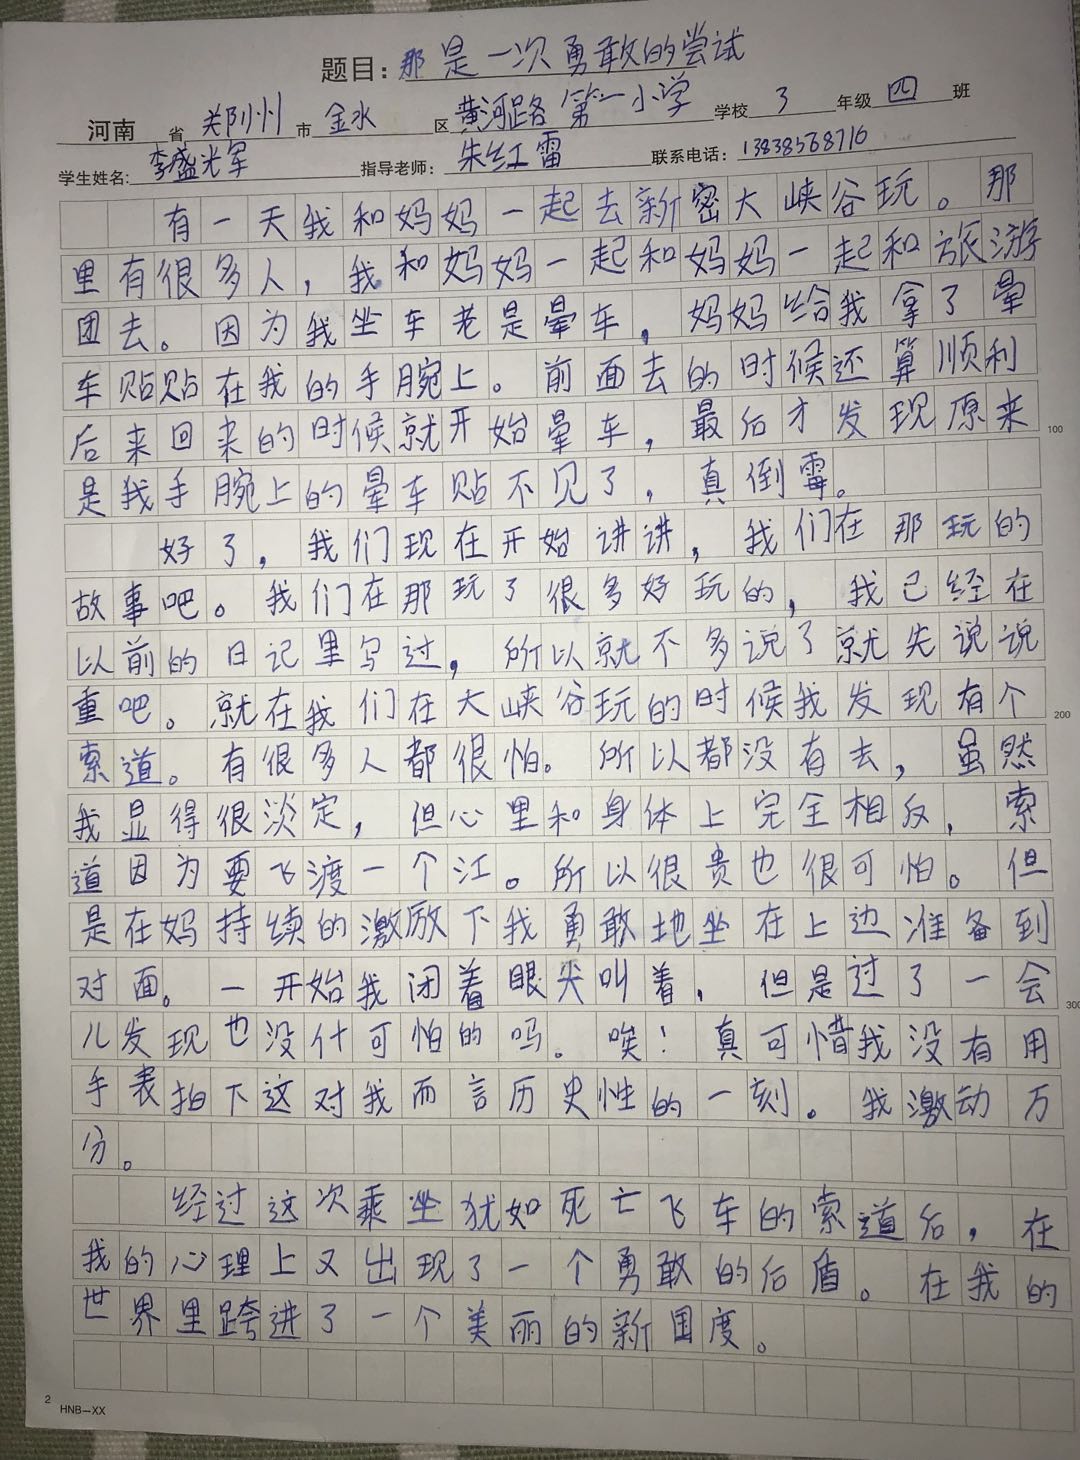 题目：那是一次勇敢的尝试
河南 省 郑州 市 金水 区 黄河路第一小学 学校 3 年级 四 班
学生姓名：李盛光军 指导老师：朱红雷 联系电话：13838568710
有一天我和妈妈一起去新密大峡谷玩。那
里有很多人，我和妈妈一起和妈妈一起和旅游
团去。因为我坐车老是晕车，妈妈给我拿了晕
车贴贴在我的手腕上。前面去的时候还算顺利
后来回来的时候就开始晕车，最后才发现原来 100
是我手腕上的晕车贴不见了，真倒霉。
好了，我们现在开始讲讲，我们在那玩的
故事吧。我们在那玩了很多好玩的，我已经在
以前的日记里写过，所以就不多说了就先说说
重吧。就在我们在大峡谷玩的时候我发现有个 200
索道。有很多人都很怕。所以都没有去，虽然
我显得很淡定，但心里和身体上完全相反，索
道因为要飞渡一个江。所以很贵也很可怕。但
是在妈持续的激励下我勇敢地坐在上边准备到
对面。一开始我闭着眼尖叫着，但是过了一会 300
儿发现也没什可怕的吗。唉！真可惜我没有用
手表拍下这对我而言历史性的一刻。我激动万
分。
经过这次乘坐犹如死亡飞车的索道后，在
我的心理上又出现了一个勇敢的后盾。在我的
世界里跨进了一个美丽的新国度。
2 HNB—XX